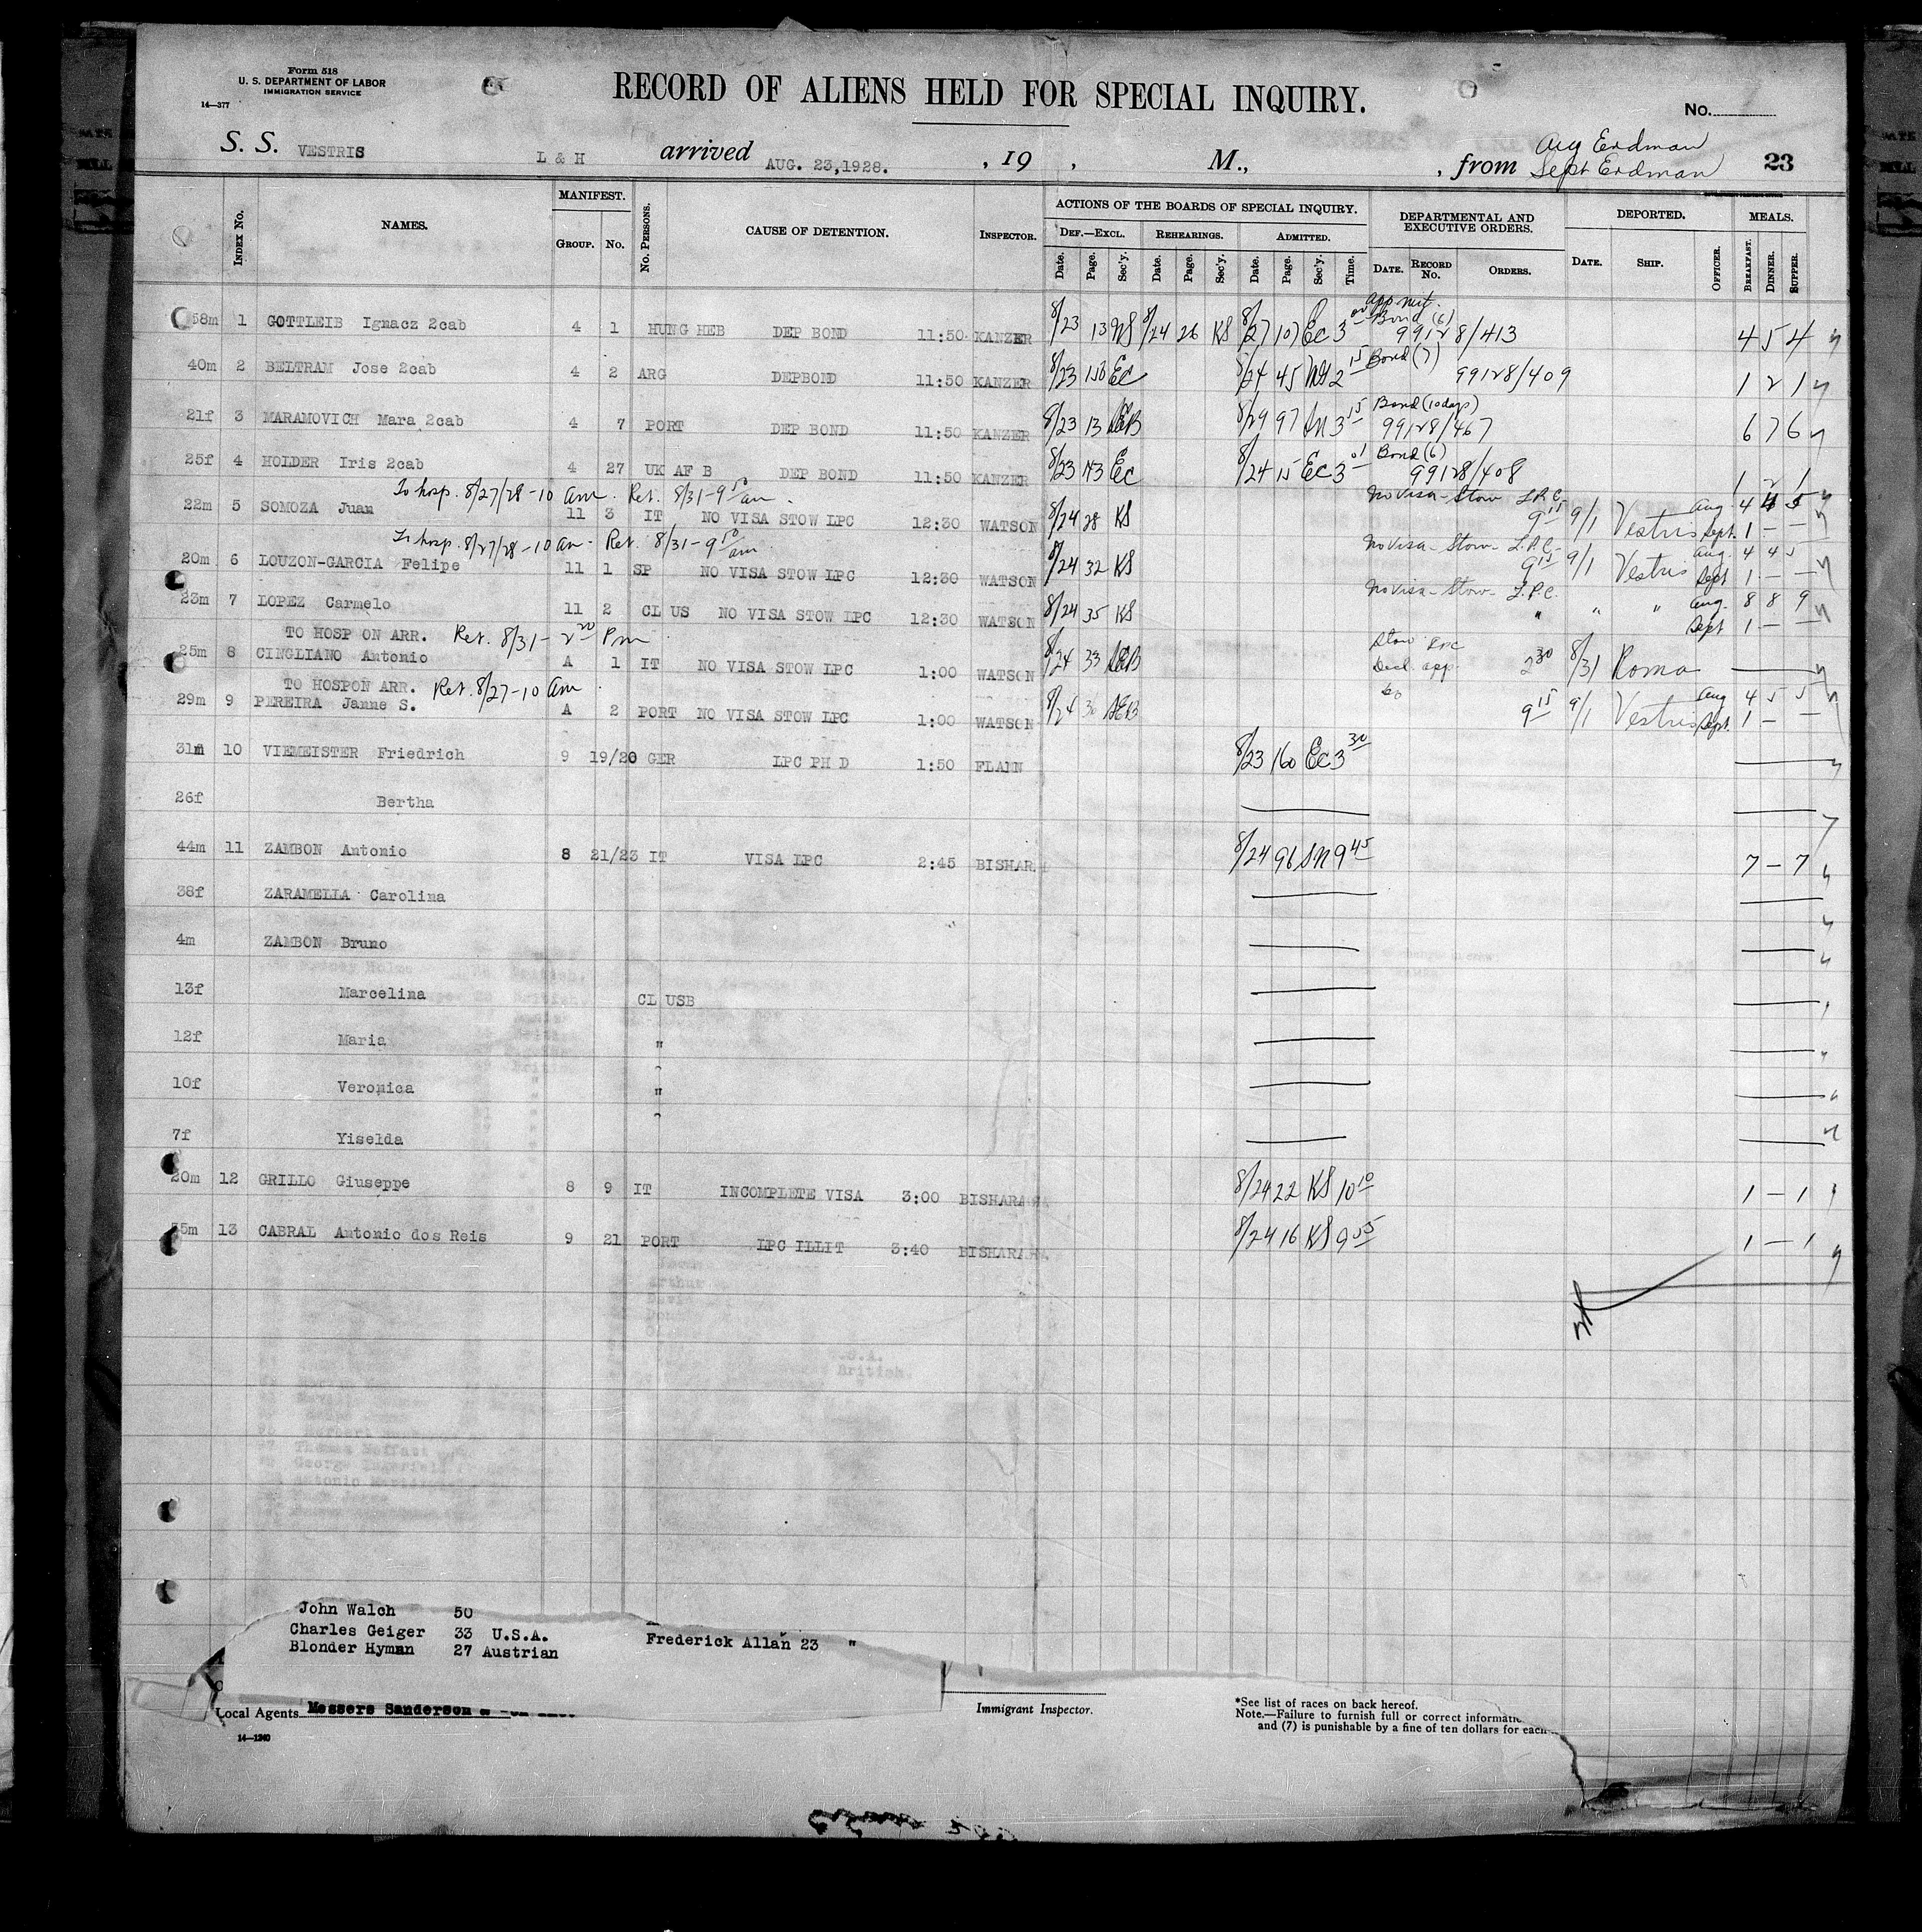 Form 518
U. S. DEPARTMENT OF LABOR
IMMIGRATION SERVICE
14—377
RECORD OF ALIENS HELD FOR SPECIAL INQUIRY.
No.
S. S. VESTRIS L & H arrived AUG. 23,1928. , 19 , M., , from Aug Erdman Sept Erdman 23
INDEX No. NAMES. MANIFEST. GROUP. No. No. PERSONS. CAUSE OF DETENTION. INSPECTOR. ACTIONS OF THE BOARDS OF SPECIAL INQUIRY. DEPARTMENTAL AND EXECUTIVE ORDERS. DEPORTED. MEALS.
DEF.—EXCL. REHEARINGS. ADMITTED.
Date. Page. Sec'y. Date. Page. Sec'y. Date. Page. Sec'y. Time. DATE. RECORD No. ORDERS. DATE. SHIP. OFFICER. BREAKFAST. DINNER. SUPPER.
58m 1 GOTTLEIB Ignacz 2cab 4 1 HUNG HEB DEP BOND 11:50 KANZER 8/23 13 NS 8/24 26 KS 8/27 107 Ec 3 00 Bond (6) 99128/413 4 5 4
40m 2 BELTRAM Jose 2cab 4 2 ARG DEPBOND 11:50 KANZER 8/23 158 Ec 8/24 45 2 15 Bond (7) 99128/409 1 2 1
21f 3 MARAMOVICH Mara 2cab 4 7 PORT DEP BOND 11:50 KANZER 8/23 13 AEB 8/29 97 SN 3 15 Bond (10 days) 99128/467 6 7 6
25f 4 HOLDER Iris 2cab 4 27 UK AF B DEP BOND 11:50 KANZER 8/23 143 Ec 8/24 15 Ec 3 01 Bond (6) 99128/408 1 2 1
To hosp. 8/27/28-10 am. Ret. 8/31-9 50 am. No visa-Stow L.P.C.
22m 5 SOMOZA Juan 11 3 IT NO VISA STOW LPC 12:30 WATSON 8/24 28 KS 9 15 9/1 Vestris Aug. 4 4 5 Sept. 1 — —
To hosp. 8/27/28-10 am- Ret. 8/31-9 50 am. No visa-Stow-L.P.C.
20m 6 LOUZON-GARCIA Felipe 11 1 SP NO VISA STOW LPC 12:30 WATSON 8/24 32 KS 9 15 9/1 Vestris Aug. 4 4 5 Sept 1 — —
No visa-Stow- L.P.C.
23m 7 LOPEZ Carmelo 11 2 CL US NO VISA STOW LPC 12:30 WATSON 8/24 35 KS " " " Aug. 8 8 9 Sept 1 — —
TO HOSP ON ARR. Ret. 8/31-2 20 Pm Stow LPC
25m 8 CINGLIANO Antonio A 1 IT NO VISA STOW LPC 1:00 WATSON 8/24 33 AEB Decl app. 2 30 8/31 Roma
TO HOSPON ARR. Ret. 8/27-10 am. do
29m 9 PEREIRA Janne S. A 2 PORT NO VISA STOW LPC 1:00 WATSON 8/24 30 AEB 9 15 9/1 Vestris Aug 4 5 5 Sept. 1 — —
31m 10 VIEMEISTER Friedrich 9 19/20 GER LPC PH D 1:50 FLANN 8/23 160 Ec 3 30
26f Bertha
44m 11 ZAMBON Antonio 8 21/23 IT VISA LPC 2:45 BISHAR 8/24 96 SN 9 45 7 — 7
38f ZARAMELLA Carolina
4m ZAMBON Bruno
13f Marcelina CL USB
12f Maria "
10f Veronica "
7f Yiselda
20m 12 GRILLO Giuseppe 8 9 IT INCOMPLETE VISA 3:00 BISHARA 8/24 22 KS 10 10 1 — 1
35m 13 CABRAL Antonio dos Reis 9 21 PORT LPC ILLIT 3:40 BISHARA 8/24 16 KS 9 55 1 — 1
John Walch 50
Charles Geiger 33 U.S.A.
Blonder Hyman 27 Austrian
Frederick Allan 23 "
Local Agents Messers Sanderson
Immigrant Inspector.
14—1240
*See list of races on back hereof.
Note.—Failure to furnish full or correct informatio
and (7) is punishable by a fine of ten dollars for each